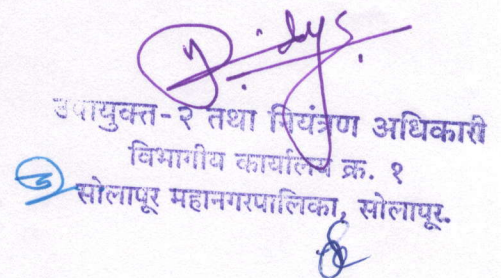 उपायुक्त-२ तथा नियंत्रण अधिकारी
विभागीय कार्यालय क्र. १
सोलापूर महानगरपालिका, सोलापूर.